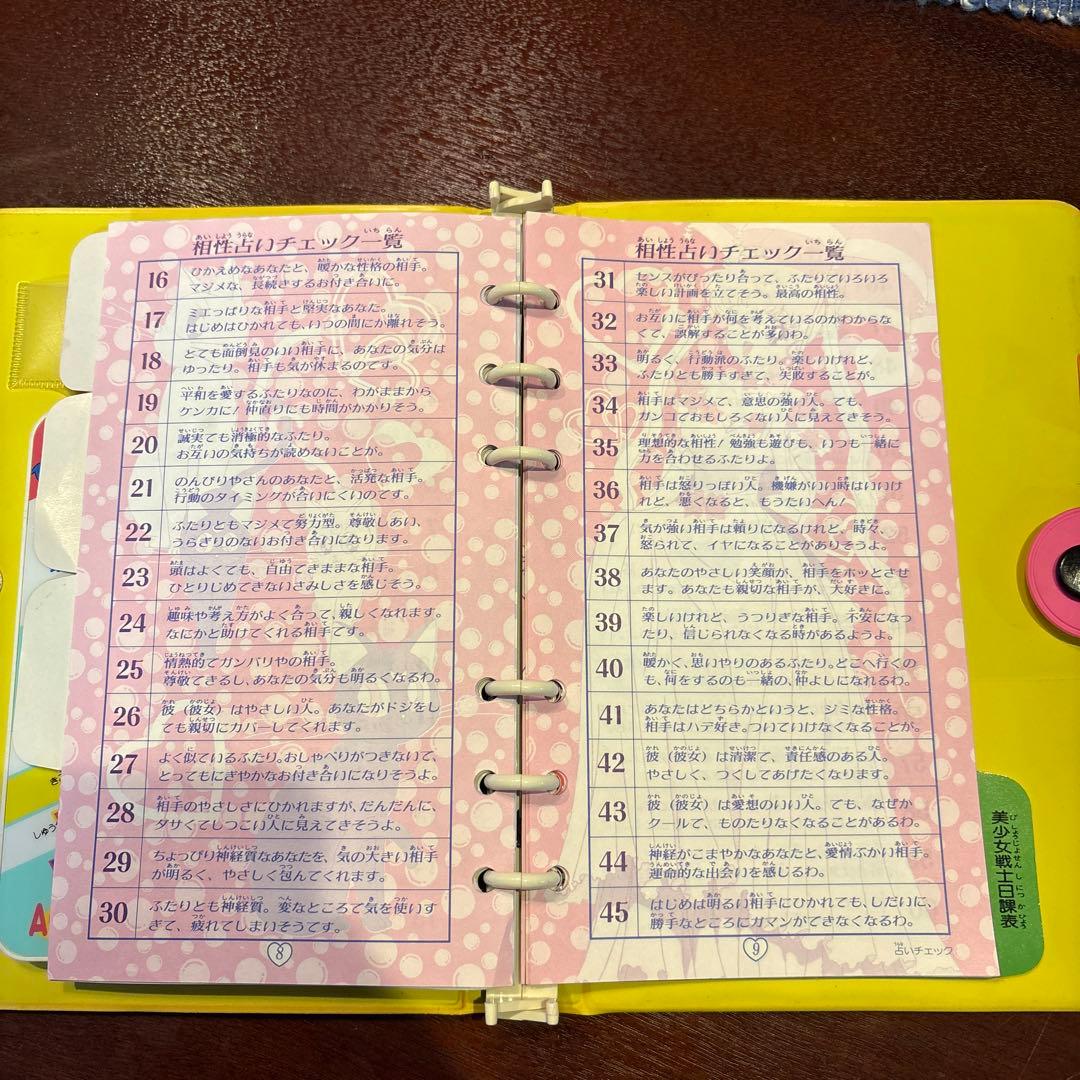 相性占いチェック一覧
16 ひかえめなあなたと、暖かな性格の相手。
マジメな、長続きするお付き合いに。
17 ミエっぱりな相手と堅実なあなた。
はじめはひかれても、いつの間にか離れそう。
18 とても面倒見のいい相手に、あなたの気分は
ゆったり。相手も気が休まるのです。
19 平和を愛するふたりなのに、わがままから
ケンカに!仲直りにも時間がかかりそう。
20 誠実でも消極的なふたり。
お互いの気持ちが読めないことが。
21 のんびりやさんのあなたと、活発な相手。
行動のタイミングが合いにくいのです。
22 ふたりともマジメで努力型。尊敬しあい、
うらぎりのないお付き合いになります。
23 頭はよくても、自由できままな相手。
ひとりじめできないさみしさを感じそう。
24 趣味や考え方がよく合って、親しくなれます。
なにかと助けてくれる相手です。
25 情熱的でガンバリやの相手。
尊敬できるし、あなたの気分も明るくなるわ。
26 彼(彼女)はやさしい人。あなたがドジをし
ても親切にカバーしてくれます。
27 よく似ているふたり。おしゃべりがつきないで、
とってもにぎやかなお付き合いになりそうよ。
28 相手のやさしさにひかれますが、だんだんに、
クサくてしつこい人に見えてきそうよ。
29 ちょっぴり神経質なあなたを、気の大きい相手
が明るく、やさしく包んでくれます。
30 ふたりとも神経質。変なところで気を使いす
ぎて、疲れてしまいそうです。
8
相性占いチェック一覧
31 センスがぴったり合って、ふたりでいろいろ
楽しい計画を立てそう。最高の相性。
32 お互いに相手が何を考えているのかわからな
くて、誤解することが多いわ。
33 明るく、行動派のふたり。楽しいけれど、
ふたりとも勝手すぎて、失敗することが。
34 相手はマジメで、意思の強い人。でも、
ガンコでおもしろくない人に見えてきそう。
35 理想的な相性!勉強も遊びも、いつも一緒に
力を合わせるふたりよ。
36 相手は怒りっぽい人。機嫌がいい時はいいけ
れど、悪くなると、もうたいへん!
37 気が強い相手は頼りになるけれど、時々、
怒られて、イヤになることがありそうよ。
38 あなたのやさしい笑顔が、相手をホッとさせ
ます。あなたも親切な相手が、大好きに。
39 楽しいけれど、うつりぎな相手。不安になっ
たり、信じられなくなる時があるようよ。
40 暖かく、思いやりのあるふたり。どこへ行くの
も、何をするのも一緒の、仲よしになれるわ。
41 あなたはどちらかというと、ジミな性格。
相手はハデ好き。ついていけなくなることが。
42 彼(彼女)は清潔で、責任感のある人。
やさしく、つくしてあげたくなります。
43 彼(彼女)は愛想のいい人。でも、なぜか
クールで、ものたりなくなることがあるわ。
44 神経がこまやかなあなたと、愛情ぶかい相手。
運命的な出会いを感じるわ。
45 はじめは明るい相手にひかれても、しだいに、
勝手なところにガマンができなくなるわ。
9
占いチェック
美少女戦士日課表